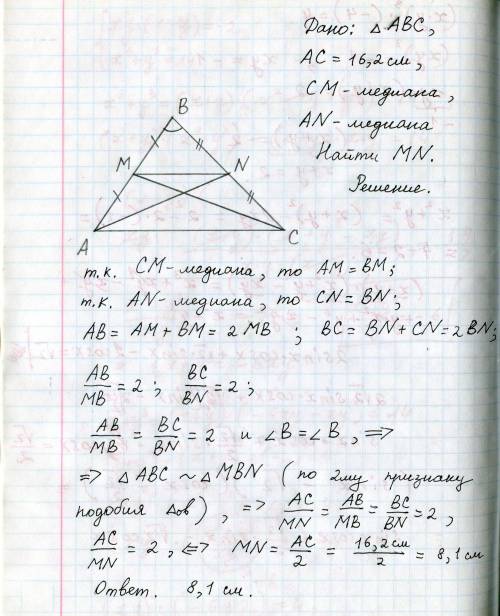 Дано: △ABC,
AC = 16,2 см,
CM - медиана,
AN - медиана
Найти MN.
Решение.
B
M N
A C
т.к. CM - медиана, то AM = BM;
т.к. AN - медиана, то CN = BN;
AB = AM + BM = 2 MB ; BC = BN + CN = 2 BN;
AB/MB = 2 ; BC/BN = 2 ;
AB/MB = BC/BN = 2 и ∠B = ∠B, =>
=> △ABC ~ △MBN (по 2му признаку
подобия △ов), => AC/MN = AB/MB = BC/BN = 2,
AC/MN = 2, <=> MN = AC/2 = 16,2 см/2 = 8,1 см
Ответ. 8,1 см.